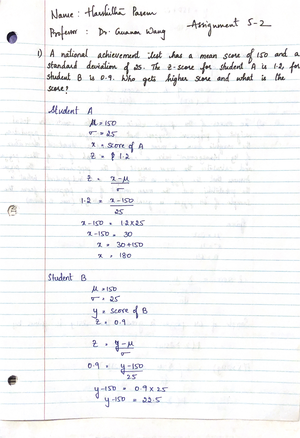 Name : Harshitha
Professor : Dr. Wang
Assignment 5-2
1) A national achievement test has a mean score of 150 and a
standard deviation of 25. The z-score for student A is 1.2, for
student B is 0.9. Who gets higher score and what is the
score?
Student A
μ = 150
σ = 25
x = score of A
z = 1.2
z = x-μ
σ
1.2 = x-150
25
x-150 = 1.2×25
x-150 = 30
x = 30+150
x = 180
Student B
μ = 150
σ = 25
y = score of B
z = 0.9
z = y-μ
σ
0.9 = y-150
25
y-150 = 0.9 × 25
y-150 = 22.5